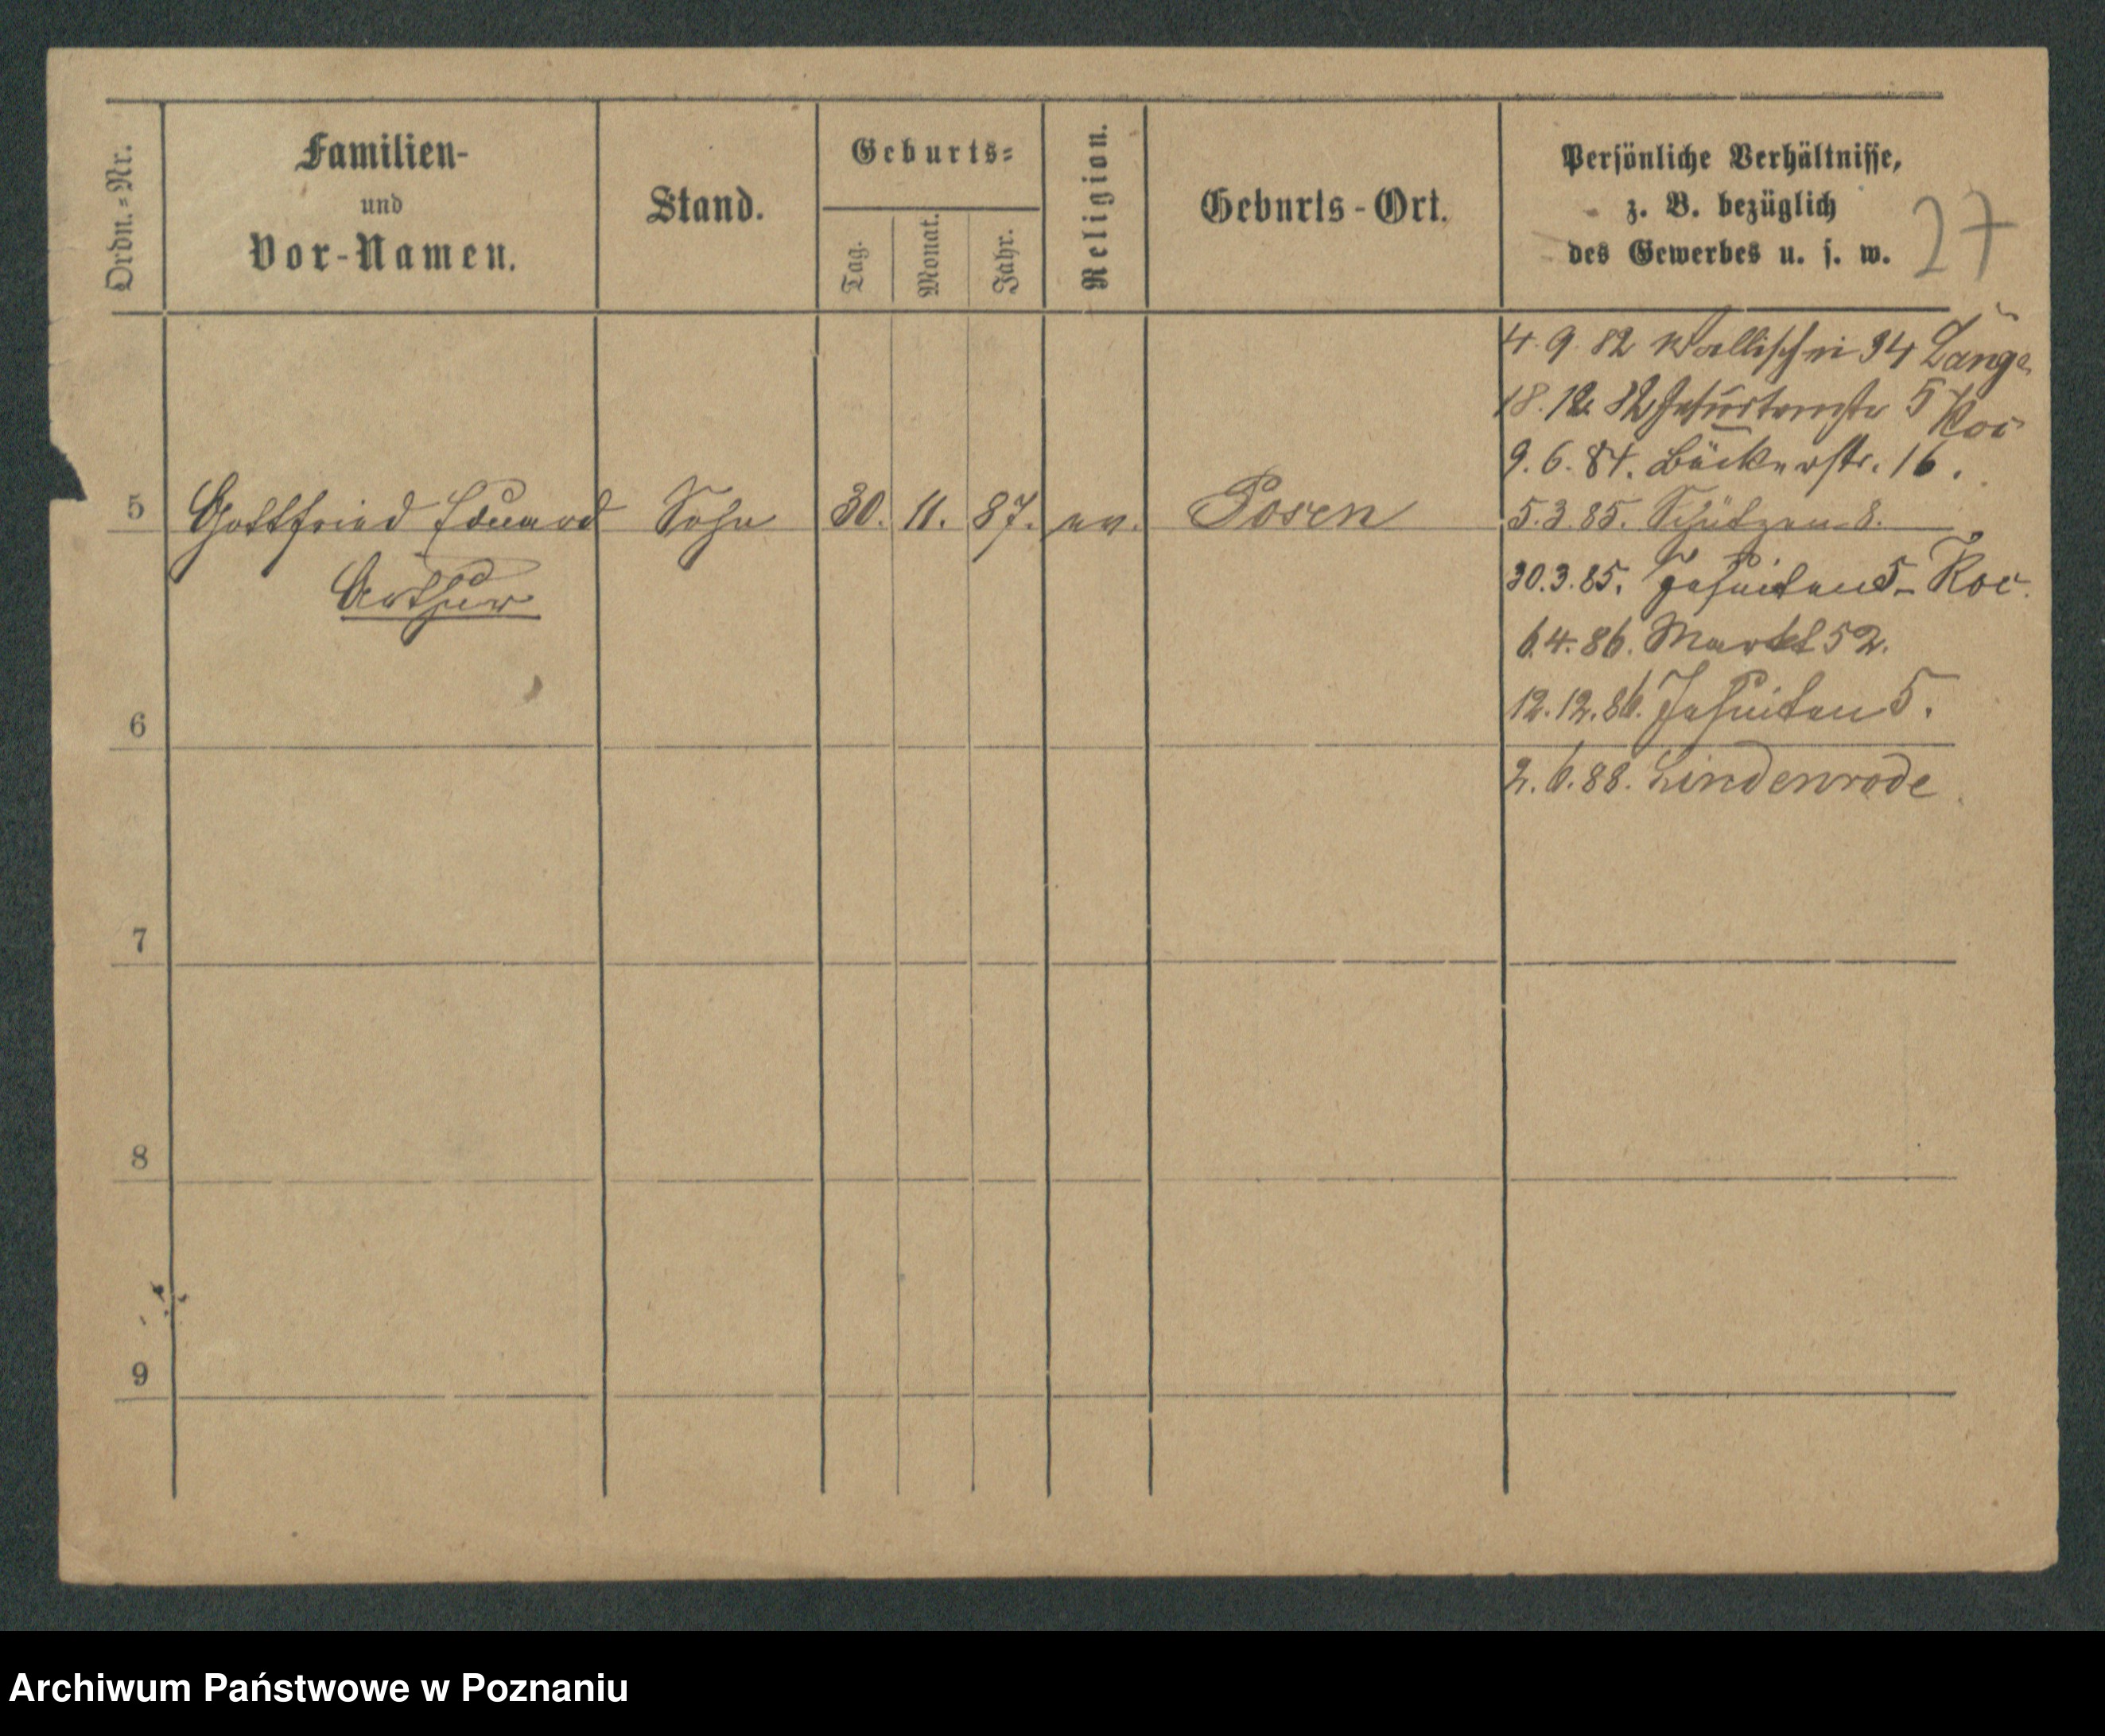 Ordn.-Nr.
Familien-
und
Vor-Namen.
Stand.
Geburts-
Tag.
Monat.
Jahr.
Religion.
Geburts-Ort.
Persönliche Verhältnisse,
z. B. bezüglich
des Gewerbes u. s. w.
27
4. 9. 82 Wallischei 94 Lange
18. 12. 82 5 Koc
9. 6. 84. Bäckerstr. 16.
5 Gottfried Eduard Sohn 30. 11. 87. ev. Posen 5. 3. 85. Schützen 8.
Arthur
30. 3. 85. Jesuiten 5 - Koc.
6. 4. 86. Markt 52.
12. 12. 86. Jesuiten 5.
6
2. 6. 88. Lindenrode
7
8
9
Archiwum Państwowe w Poznaniu